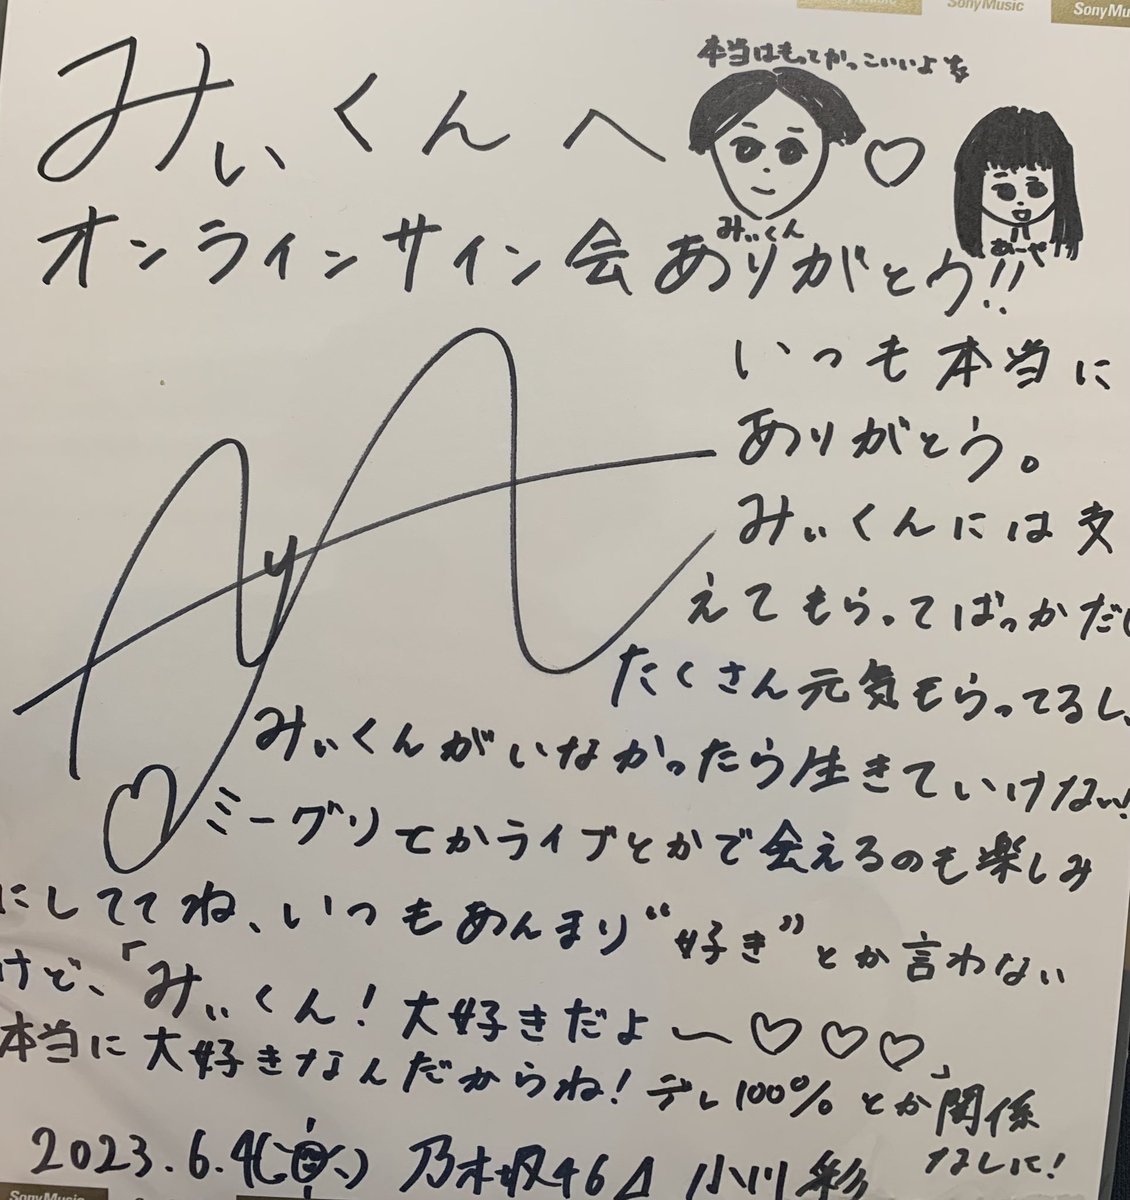 SonyMusic
SonyMu
本当はもってかっこいいよ
みぃくんへ
みぃくん
あーや
オンラインサイン会ありがとう!!
いつも本当に
ありがとう。
みぃくんには支
えてもらってばっかだし
たくさん元気もらってるし、
AyA
みぃくんがいなかったら生きていけない!
ミーグリてかライブとかで会えるのも楽しみ
にしててね、いつもあんまり“好き”とか言わない
けど、「みぃくん!大好きだよ〜♡♡♡」
本当に大好きなんだからね!デレ100%とか関係
なしに!
2023.6.4() 乃木坂46 小川彩
SonyMusic